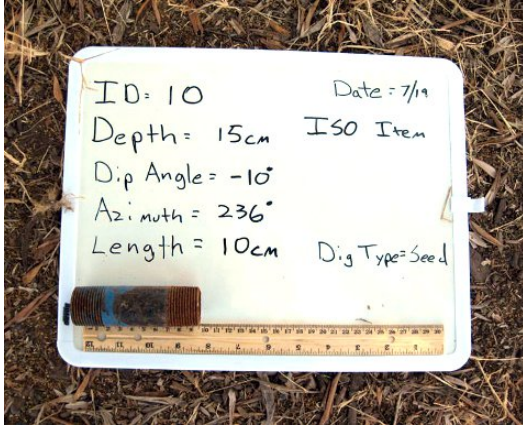 ID: 10
Date: 7/19
Depth= 15cm
ISO Item
Dip Angle= -10°
Azimuth = 236°
Length = 10cm
Dig Type=Seed